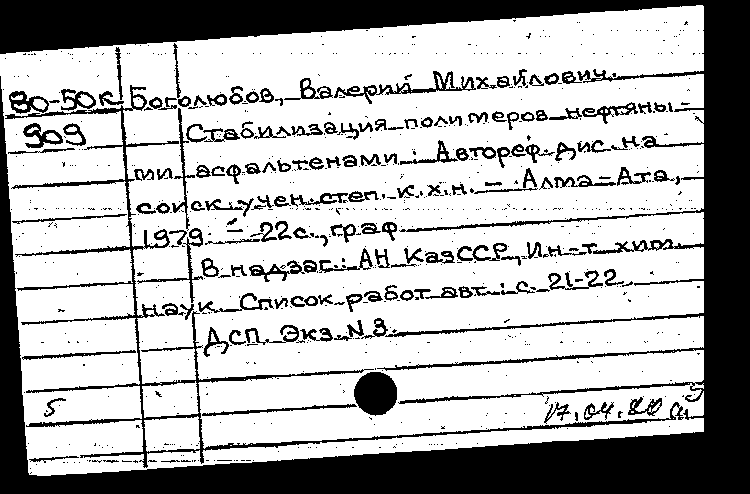 80-50к Боголюбов, Валерий Михайлович.
909 Стабилизация полимеров нефтяны-
ми асфальтенами: Автореф. дис. на
соиск. учен. степ. к.х.н. – Алма-Ата,
1979. – 22с., граф.
В надзаг.: АН КазССР, Ин-т хим.
наук. Список работ авт.: с. 21-22
ДСП. Экз. N 3.
5
17.04.80